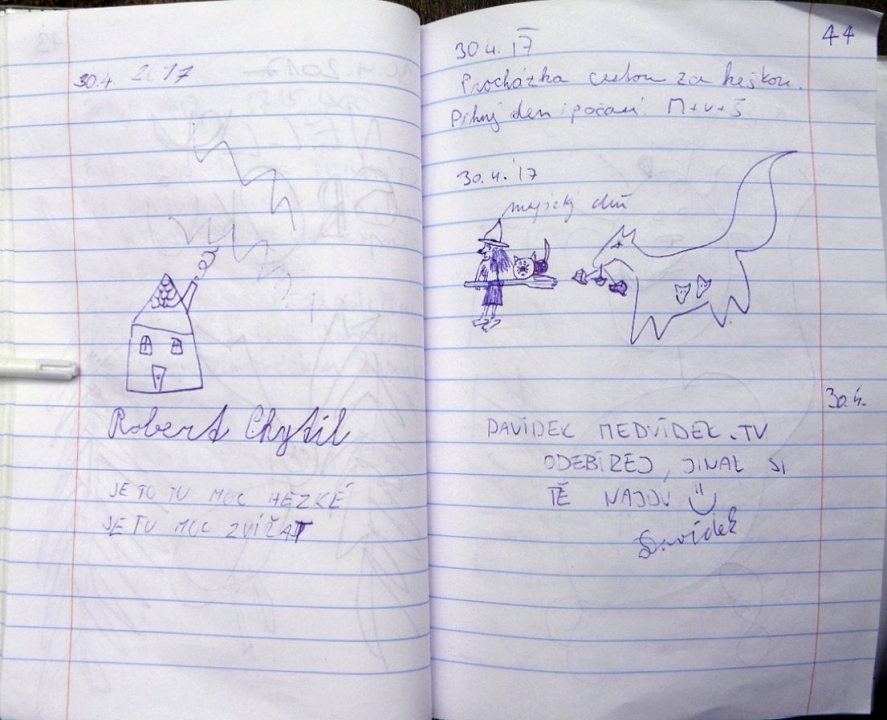 30.4 2017
Robert Chytil
JE TO TU MOC HEZKÉ
JE TU MOC ZVÍŘAT
44
30.4.17
Procházka za keškou.
Pěkný den i počasí M+V+Š
30.4.'17
magický dům
30.4.
DAVÍDEK MEDVÍDEK.TV
ODEBÍREJ, JINAK SI
TĚ NAJDU
Davídek